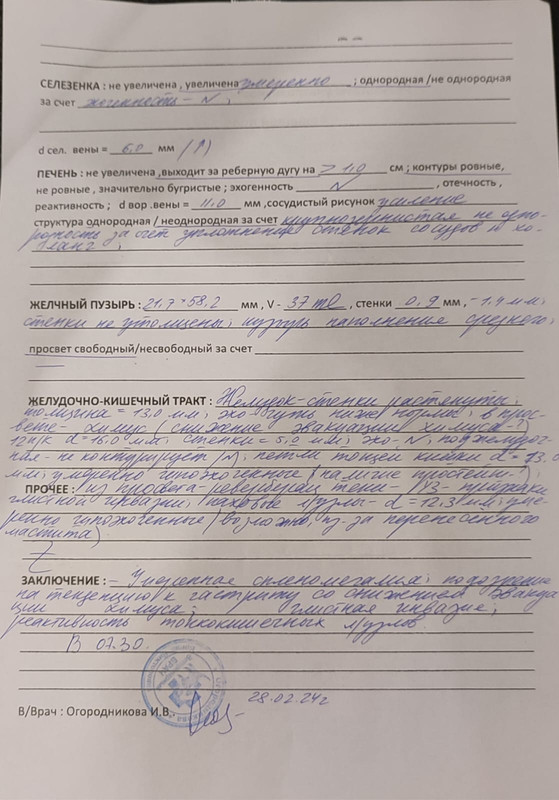 СЕЛЕЗЕНКА : не увеличена , увеличена умеренно ; однородная /не однородная
за счет эхогенность - N ;
d сел. вены = 6,0 мм (↑)
ПЕЧЕНЬ : не увеличена ,выходит за реберную дугу на > 1,0 см ; контуры ровные,
не ровные , значительно бугристые ; эхогенность N , отечность ,
реактивность ; d вор .вены = 11,0 мм ,сосудистый рисунок усиление
структура однородная / неоднородная за счет крупнозернистая неодно-
родность за счет уплотнения стенок сосудов и хо-
ланг ;
ЖЕЛЧНЫЙ ПУЗЫРЬ : 21,7*58,2 мм , V - 37 ml , стенки 0,9 мм , - 1,4 мм ;
стенки не утолщены ; пузырь наполнения среднего ;
просвет свободный/несвободный за счет
ЖЕЛУДОЧНО-КИШЕЧНЫЙ ТРАКТ : Желудок - стенки растянуты ;
толщина = 13,0 мм ; эхо - чуть ниже нормы ; в прос-
вете - химус (снижение эвакуации химуса - ?)
12 п/к d = 16,0 мм ; стенки = 5,0 мм ; эхо - N ; поджелудоч-
ная - не контурирует (N) ; петли тощей кишки d = 13,0
мм ; умеренно гипоэхогенные (наличие простейш - ?)
ПРОЧЕЕ : из просвета - реверберац тени - УЗ - признаки
глистной инвазии ; паховые л/узлы - d = 12,3 мм ; уме-
ренно гипоэхогенные (возможно из-за перенесенного
мастита)
ЗАКЛЮЧЕНИЕ : - Умеренная спленомегалия ; подозрение
на тенденцию к гастриту со снижением эвакуа
ции химуса ; глистная инвазия ;
реактивность тонкокишечных л/узлов.
В 07.30.
28.02.24г
В/Врач : Огородникова И.В.